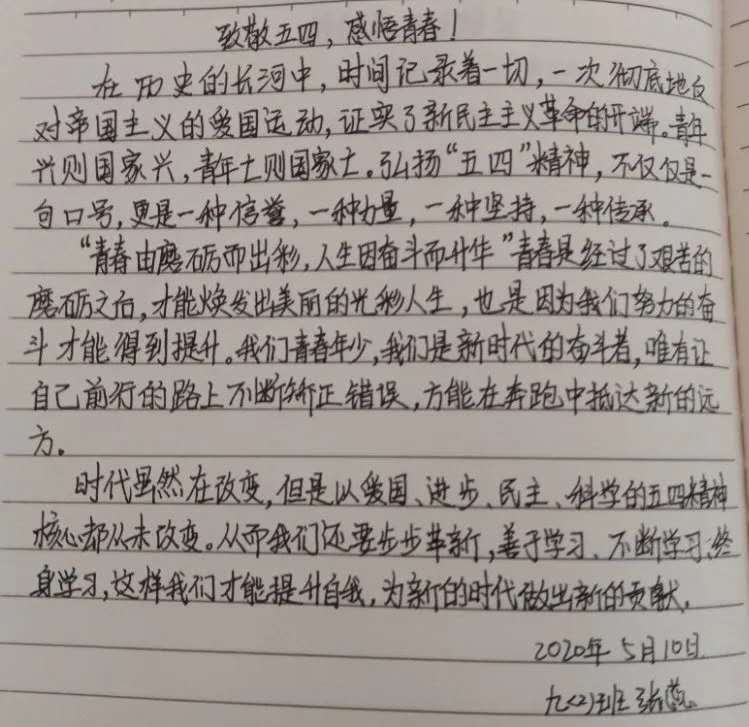 致敬五四，感悟青春！
在历史的长河中，时间记录着一切，一次彻底地反
对帝国主义的爱国运动，证实了新民主主义革命的开端。青年
兴则国家兴，青年士则国家士。弘扬“五四”精神，不仅仅是一
句口号，更是一种信誉，一种力量，一种坚持，一种传承。
“青春由磨砺而出彩，人生因奋斗而升华”青春是经过了艰苦的
磨砺之后，才能焕发出美丽的光彩人生，也是因为我们努力的奋
斗才能得到提升。我们青春年少，我们是新时代的奋斗者，唯有让
自己前行的路上不断矫正错误，方能在奔跑中抵达新的远
方。
时代虽然在改变，但是以爱国、进步、民主、科学的五四精神
核心都从未改变。从而我们还要步步革新，善于学习、不断学习、终
身学习，这样我们才能提升自我，为新的时代做出新的贡献。
2020年5月10日
九(2)班 张